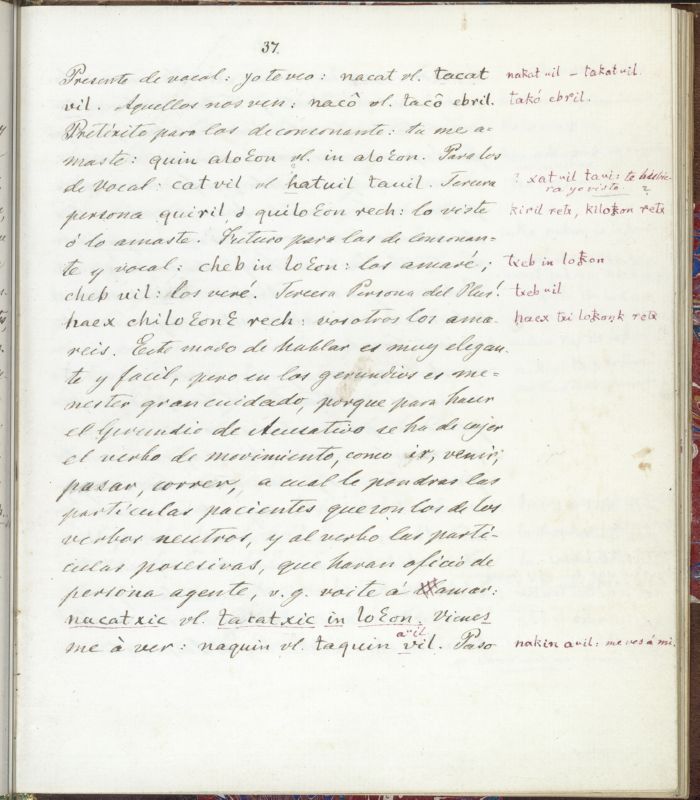 37.
Presente de vocal: yo te veo: nacat vl. tacat
vil. Aquellos nos ven: nacô vl. tacô ebril.
Pretérito para los de consonante: tu me a=
maste: quin aloƐon vl. in aloƐon. Para los
de vocal: catvil vl hatuil tauil. Tercera
persona quiril, ó quiloƐon rech: lo viste
ó lo amaste. Futuro para las de consonan=
te y vocal: cheb in loƐon: los amaré;
cheb uil: los veré. Tercera Persona del Plurˡ.
haex chiloƐonƐ rech: vosotros los ama-
reis. Este modo de hablar es muy elegan-
te y facil, pero en los gerundios es me=
nester gran cuidado, porque para hacer
el Gerundio de Acusativo se ha de cojer
el verbo de movimiento, como ir, venir,
pasar, correr, a cual le pondras las
particulas pacientes que son los de los
verbos neutros, y al verbo las parti-
culas posesivas, que haran oficio de
persona agente, v. g. voite á amar:
nacatxic vl. tacatxic in loƐon. Vienes
me à ver: naquin vl. taquin vil. Paso
auil
nakat uil – takat uil.
takó ebril.
? xat uil taui: te hubie-
ra yo visto ?
kiril retx, kilokon retx
txeb in lokon
txeb uil
haex txi lokonk retx
nakin auil: me ves á mi.